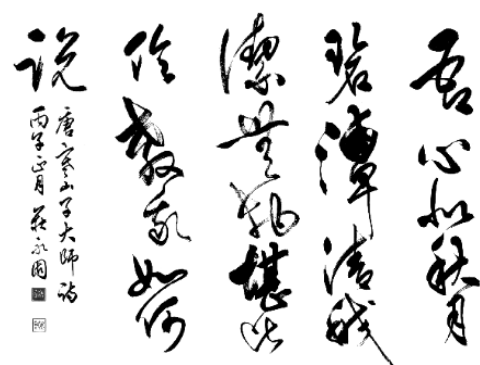 吾心似秋月
碧潭清皎
潔無物堪比
倫教我如何
説
唐寒山子大師詩
丙子正月